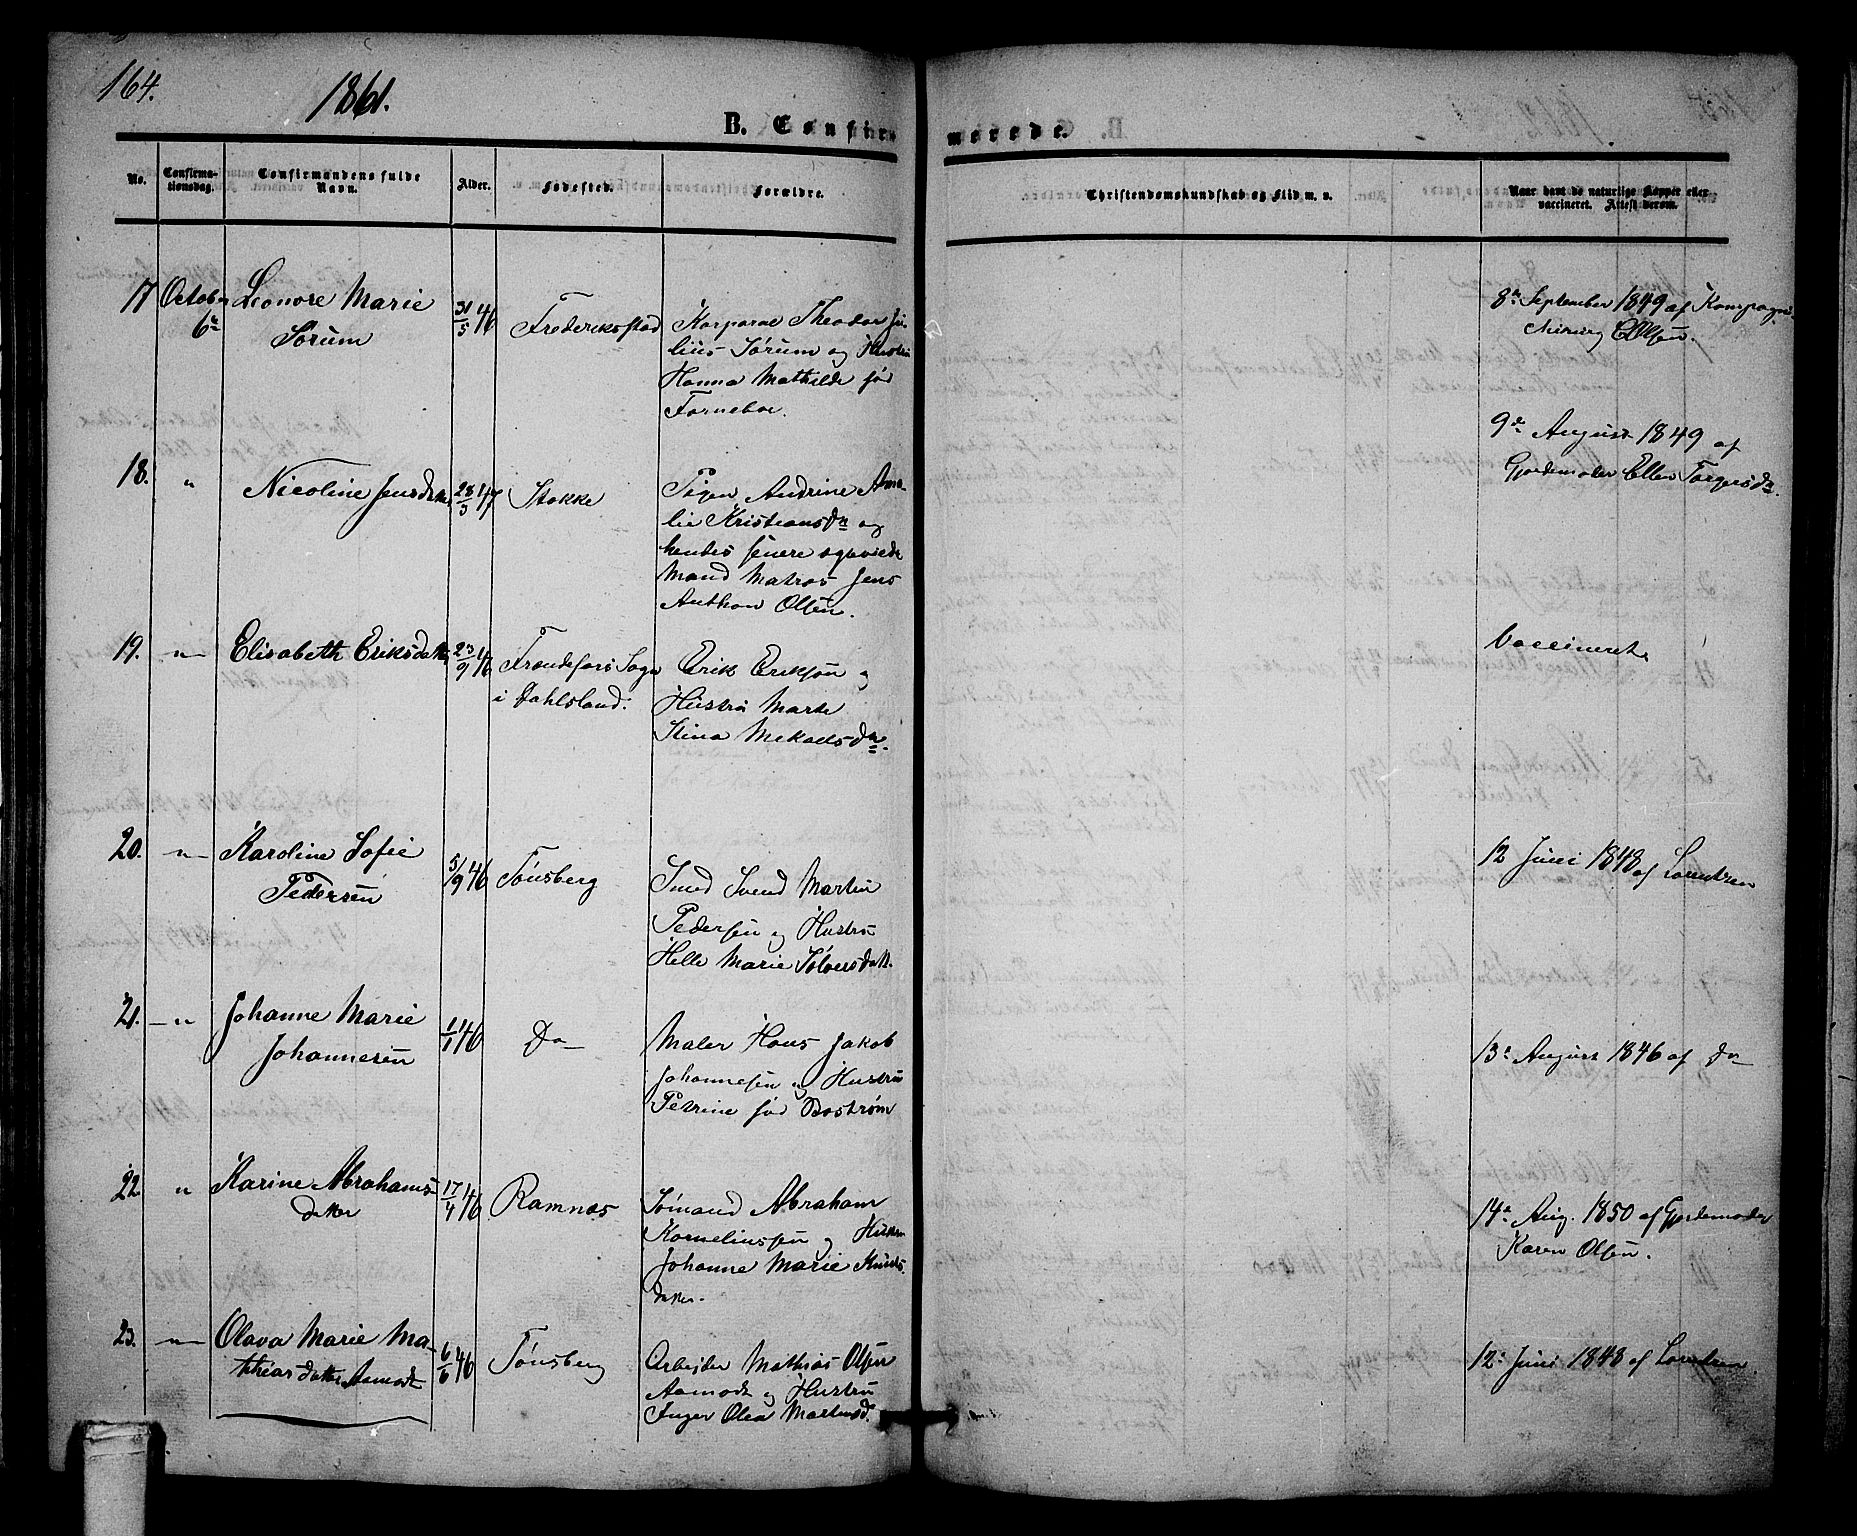 164.
1861.
B. Confirmerede.
No. Confirmationsdag. Confirmandens fulde Navn. Alder. Fødested. Forældre. Christendomskundskab og Flid m. v. Naar havt de naturlige Kopper eller vaccineret. Attest derom.
17 Octob 6te
Leonore Marie
Sørum
31/5 46
Frederiksstad
Korporal Theodor Ju-
lius Sørum og Hustru
Hanna Mathilde fød
Forneboe.
8de September 1849 af Kompagni-
COlsen.
18. "
Nicoline Jensdatter
28/3 47
Stokke
Pigen Andrine Ama-
lie Kristiansdtr og
hendes senere egteviede
Mand Matros Jens
Anthon Olsen.
9de August 1849 af
Gjordemoder Ellen Torgersdtr.
19. "
Elisabeth Eriksdatter
23/9 46
Frændefors Sogn
i Dahlsland.
Erik Eriksøn og
Hustru Marte
Stina
Vaccineret.
20. "
Karoline Sofie
Pedersen
5/9 46
Tønsberg
Smed Svend Martin
Pedersen og Hustru
Helle Marie Sølversdatt.
12 Juni 1848 af Lorentzen
21. "
Johanne Marie
Johannesen
1/1 46
Do
Maler Hans Jakob
Johannesen og Hustru
Petrine fød Bostrøm
13de August 1846 af Do
22. "
Karine Abrahams-
datter
17/4 46
Ramnæs
Sømand Abraham
Korneliussen og Hustru
Johanne Marie Knuds-
datter.
14de Aug. 1850 af Gjordemoder
Karen Olsen.
23. "
Olava Marie Ma-
thiasdatter Aamodt
6/6 46
Tønsberg
Arbejder Mathias Olsen
Aamodt og Hustru
Inger Olea Martensd.
12te Juni 1848 af Lorentzen